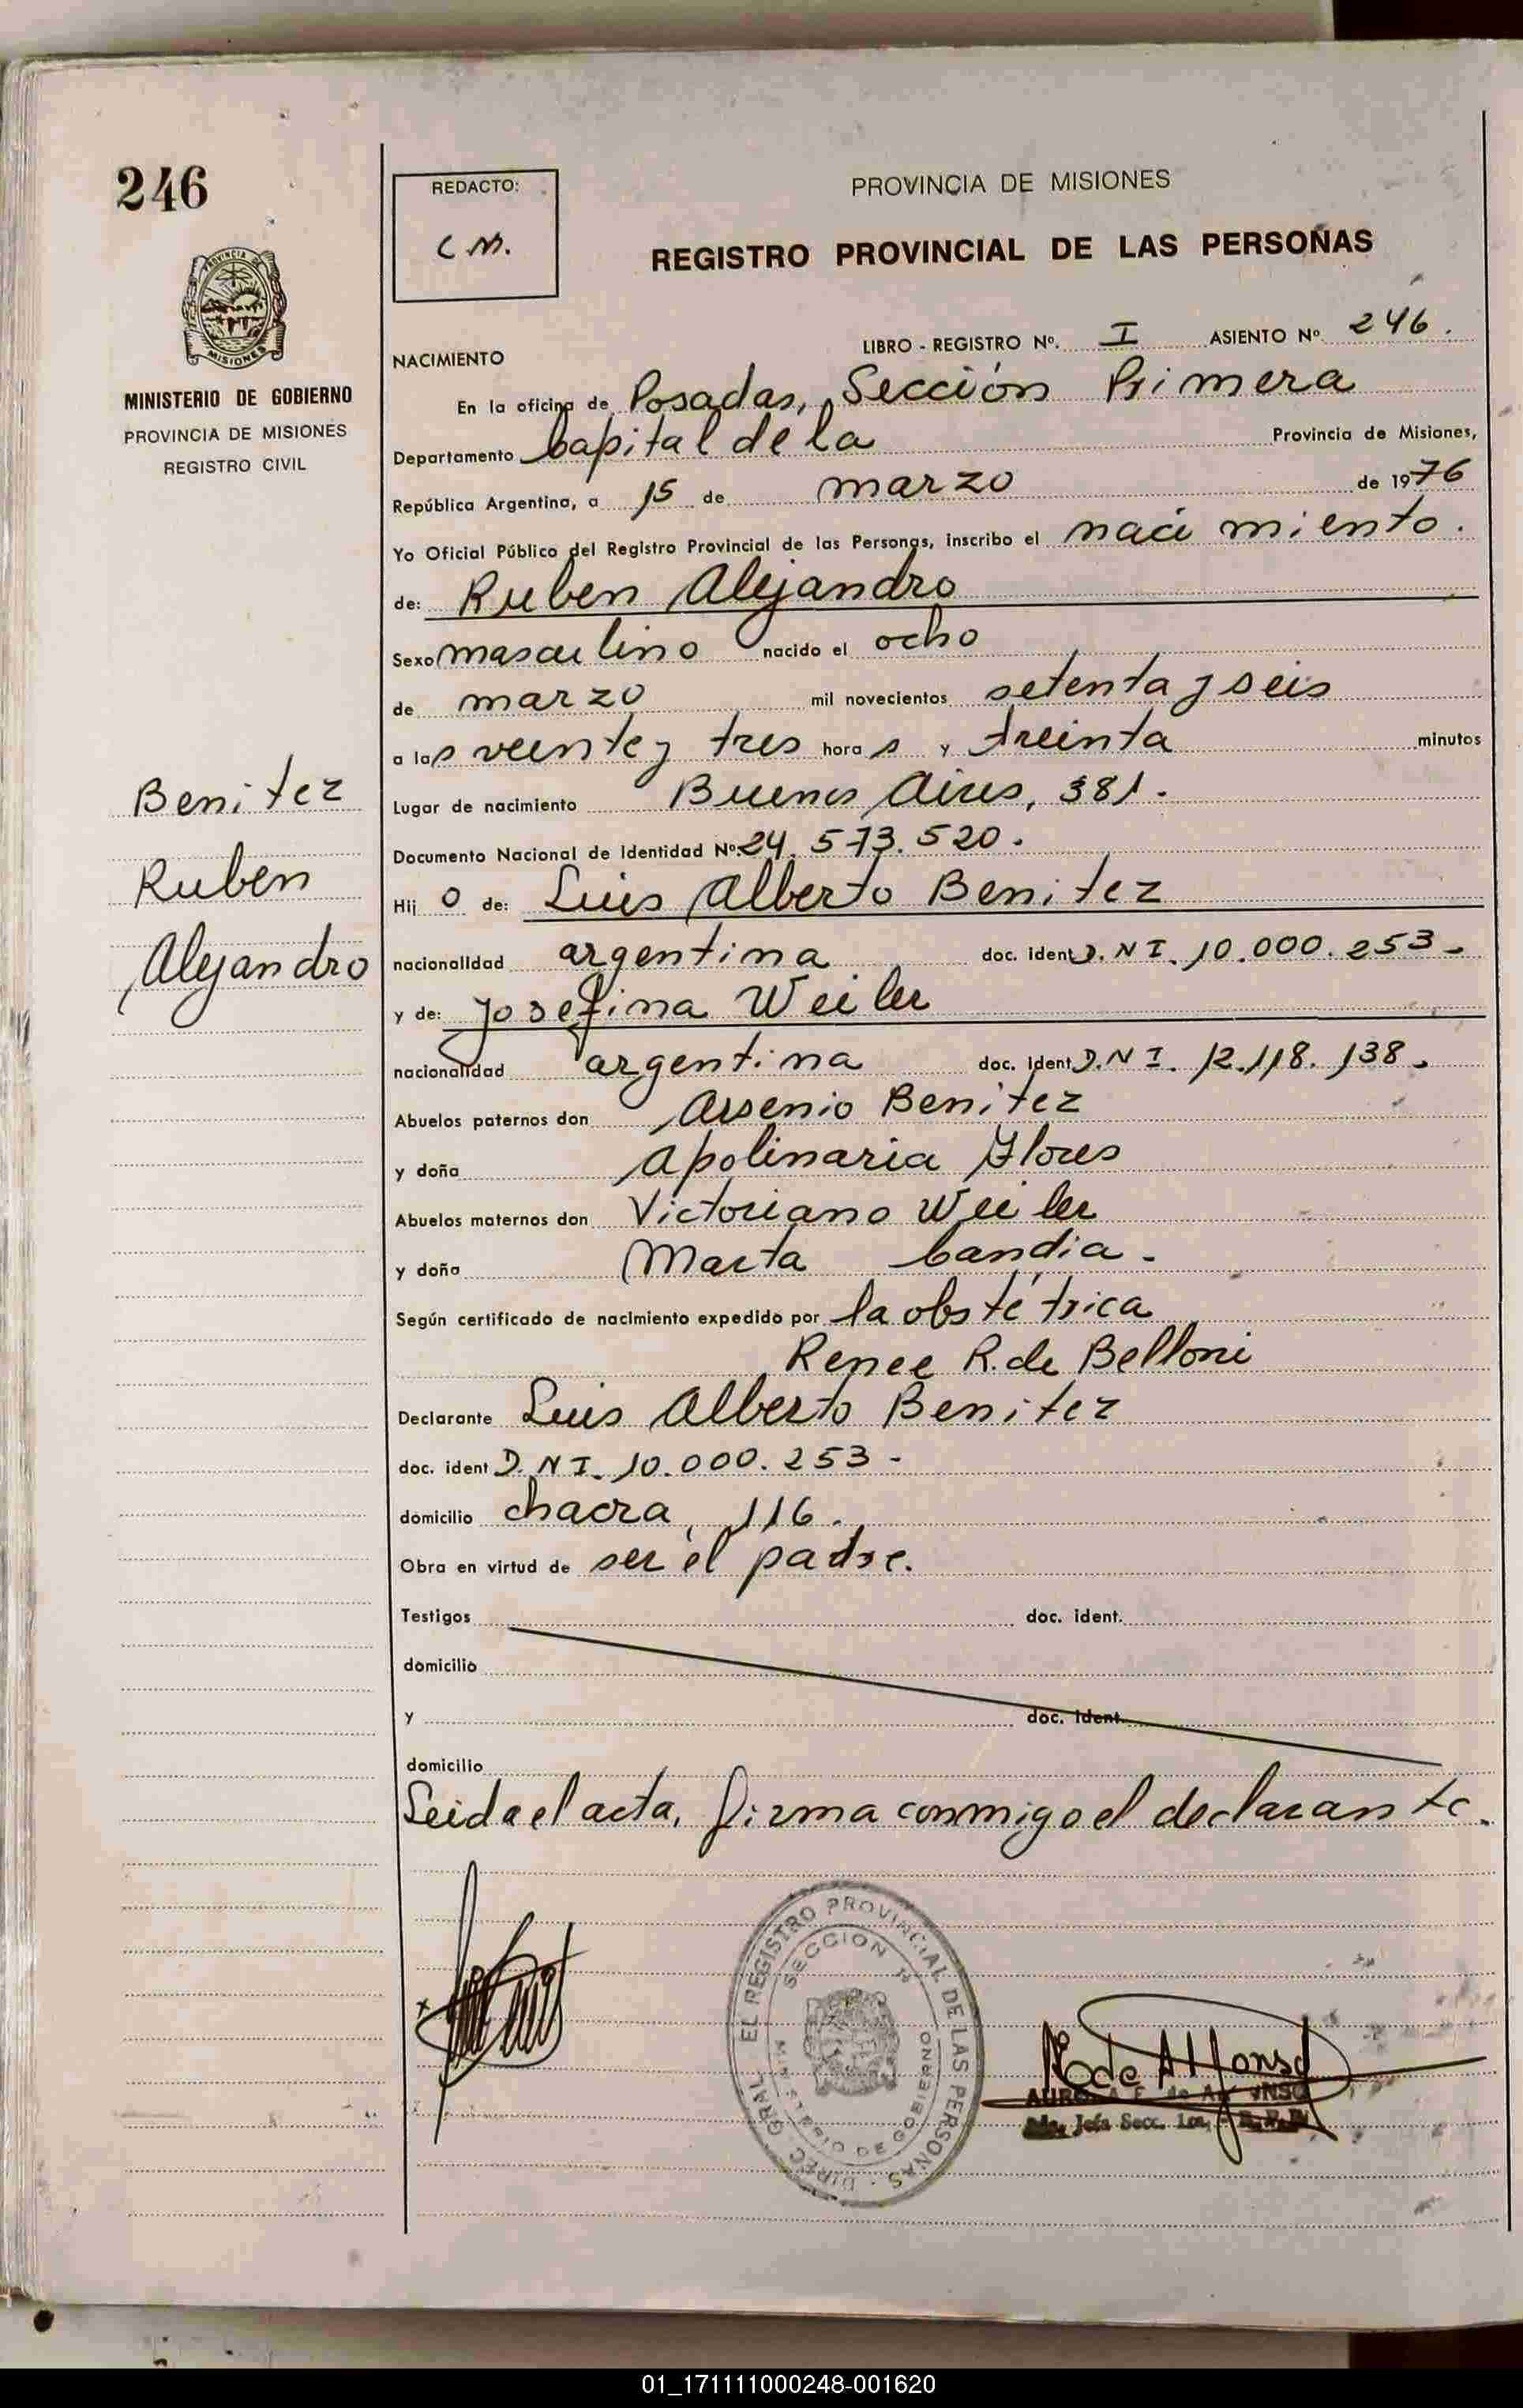 246
PROVINCIA DE
MISIONES
MINISTERIO DE GOBIERNO
PROVINCIA DE MISIONES
REGISTRO CIVIL
Benitez
Ruben
Alejandro
REDACTO:
C M.
PROVINCIA DE MISIONES
REGISTRO PROVINCIAL DE LAS PERSONAS
LIBRO - REGISTRO Nº. I ASIENTO Nº. 246.
NACIMIENTO
En la oficina de Posadas, Sección Primera
Departamento Capital de la Provincia de Misiones,
República Argentina, a 15 de marzo de 1976
Yo Oficial Público del Registro Provincial de las Personas, inscribo el nacimiento.
de: Ruben Alejandro
Sexo masculino nacido el ocho
de marzo mil novecientos setenta y seis
a las veinte y tres horas y treinta minutos
Lugar de nacimiento Buenos Aires, 381.
Documento Nacional de Identidad Nº. 24.573.520.
Hijo de: Luis Alberto Benitez
nacionalidad argentina doc. ident D.N I. 10.000.253-
y de: Josefina Weiler
nacionalidad argentina doc. ident D.N I. 12.118.138.
Abuelos paternos don Arsenio Benitez
y doña Apolinaria Flores
Abuelos maternos don Victoriano Weiler
y doña Marta Candia.
Según certificado de nacimiento expedido por la obstétrica
Renee R. de Belloni
Declarante Luis Alberto Benitez
doc. ident D.N I. 10.000.253-
domicilio chacra, 116.
Obra en virtud de ser el padre.
Testigos doc. ident.
domicilio
y doc. ident.
domicilio
Leida el acta, firma conmigo el declarante.
DIREC. GRAL. EL REGISTRO PROVINCIAL DE LAS PERSONAS
SECCION 1ª
MINISTERIO DE GOBIERNO
de Alfonso
Jefa Secc.
01_171111000248-001620